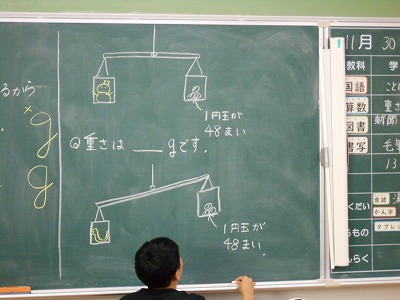 るから
×g
g
1円玉が
48まい
Q重さは ___ gです。
1円玉が
48まい。
11月 30
教科 学
国語 こと
算数 重さ
図書
書写 毛筆
13
くだい 音読
かん字
もの タブレッ
らく